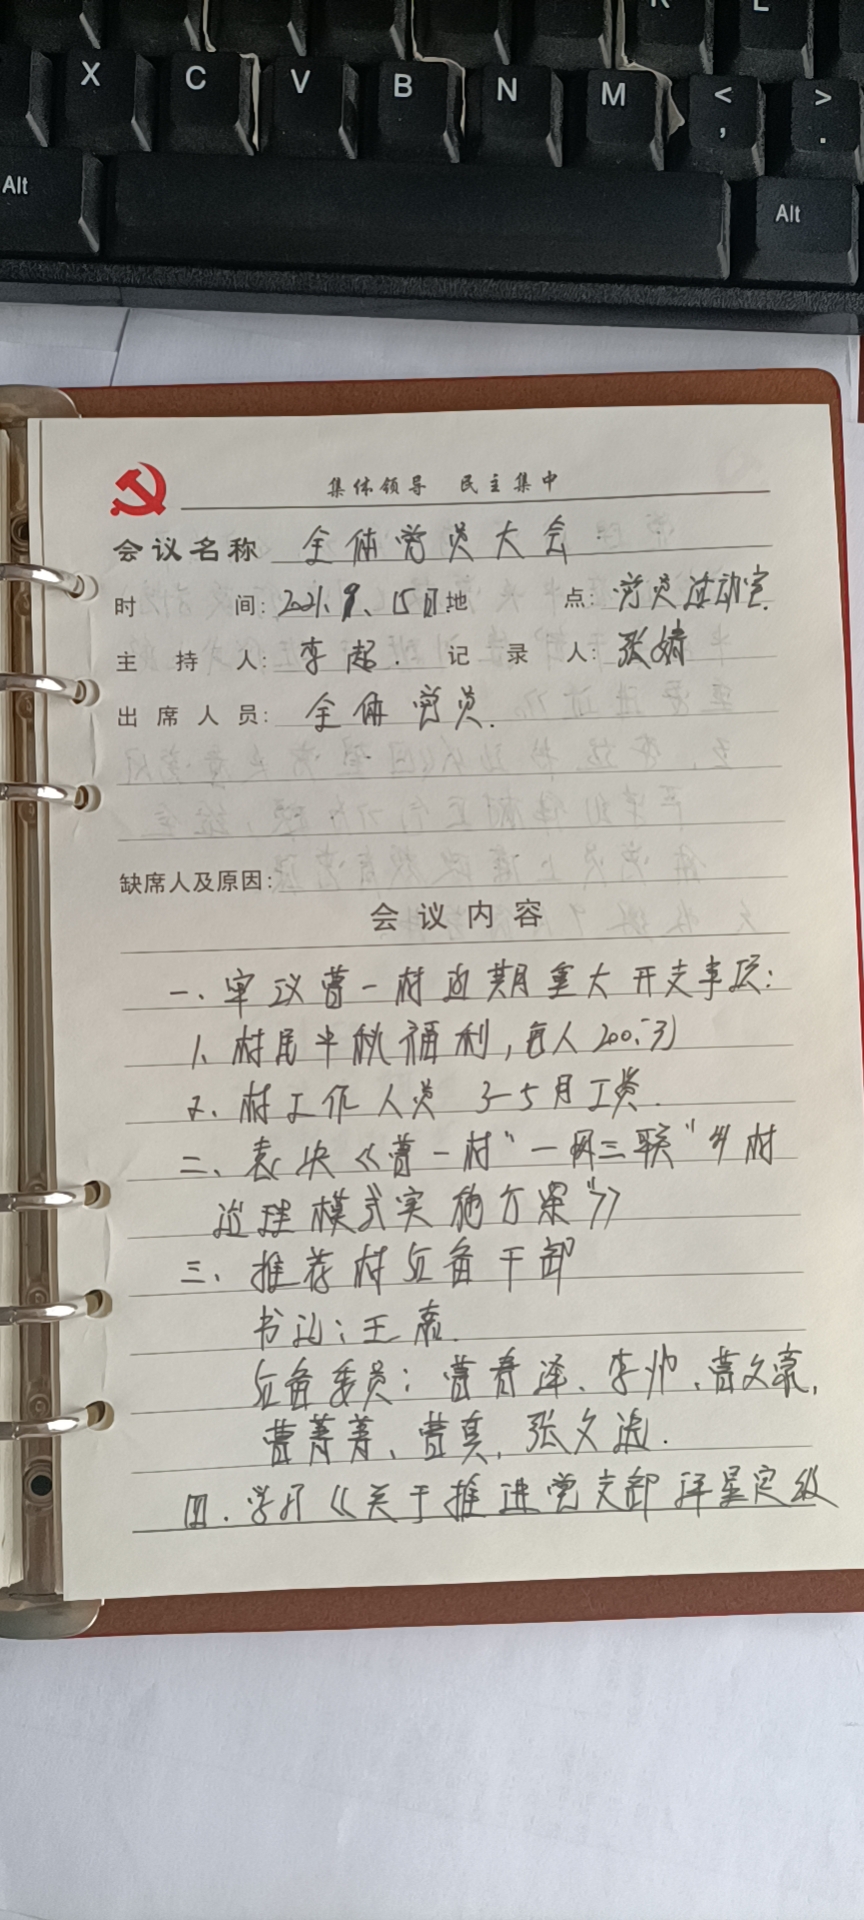 X C V B N M < ,
> .
Alt Alt
集体领导 民主集中
会议名称 全体党员大会
时 间: 2021.9.15日 地 点: 党员活动室.
主 持 人: 李超. 记 录 人: 张婧
出 席 人 员: 全体党员.
缺席人及原因:
会 议 内 容
一、审议曹一村近期重大开支事项:
1、村民中秋福利,每人200元
2、村工作人员 3-5月工资.
二、表决《曹一村"一网三联"乡村
治理模式实施方案"》
三、推荐村后备干部
书记:王
后备委员:曹春泽、李帅、曹文豪,
曹菁菁、曹真、张文
四.学习《关于推进党支部评星定级